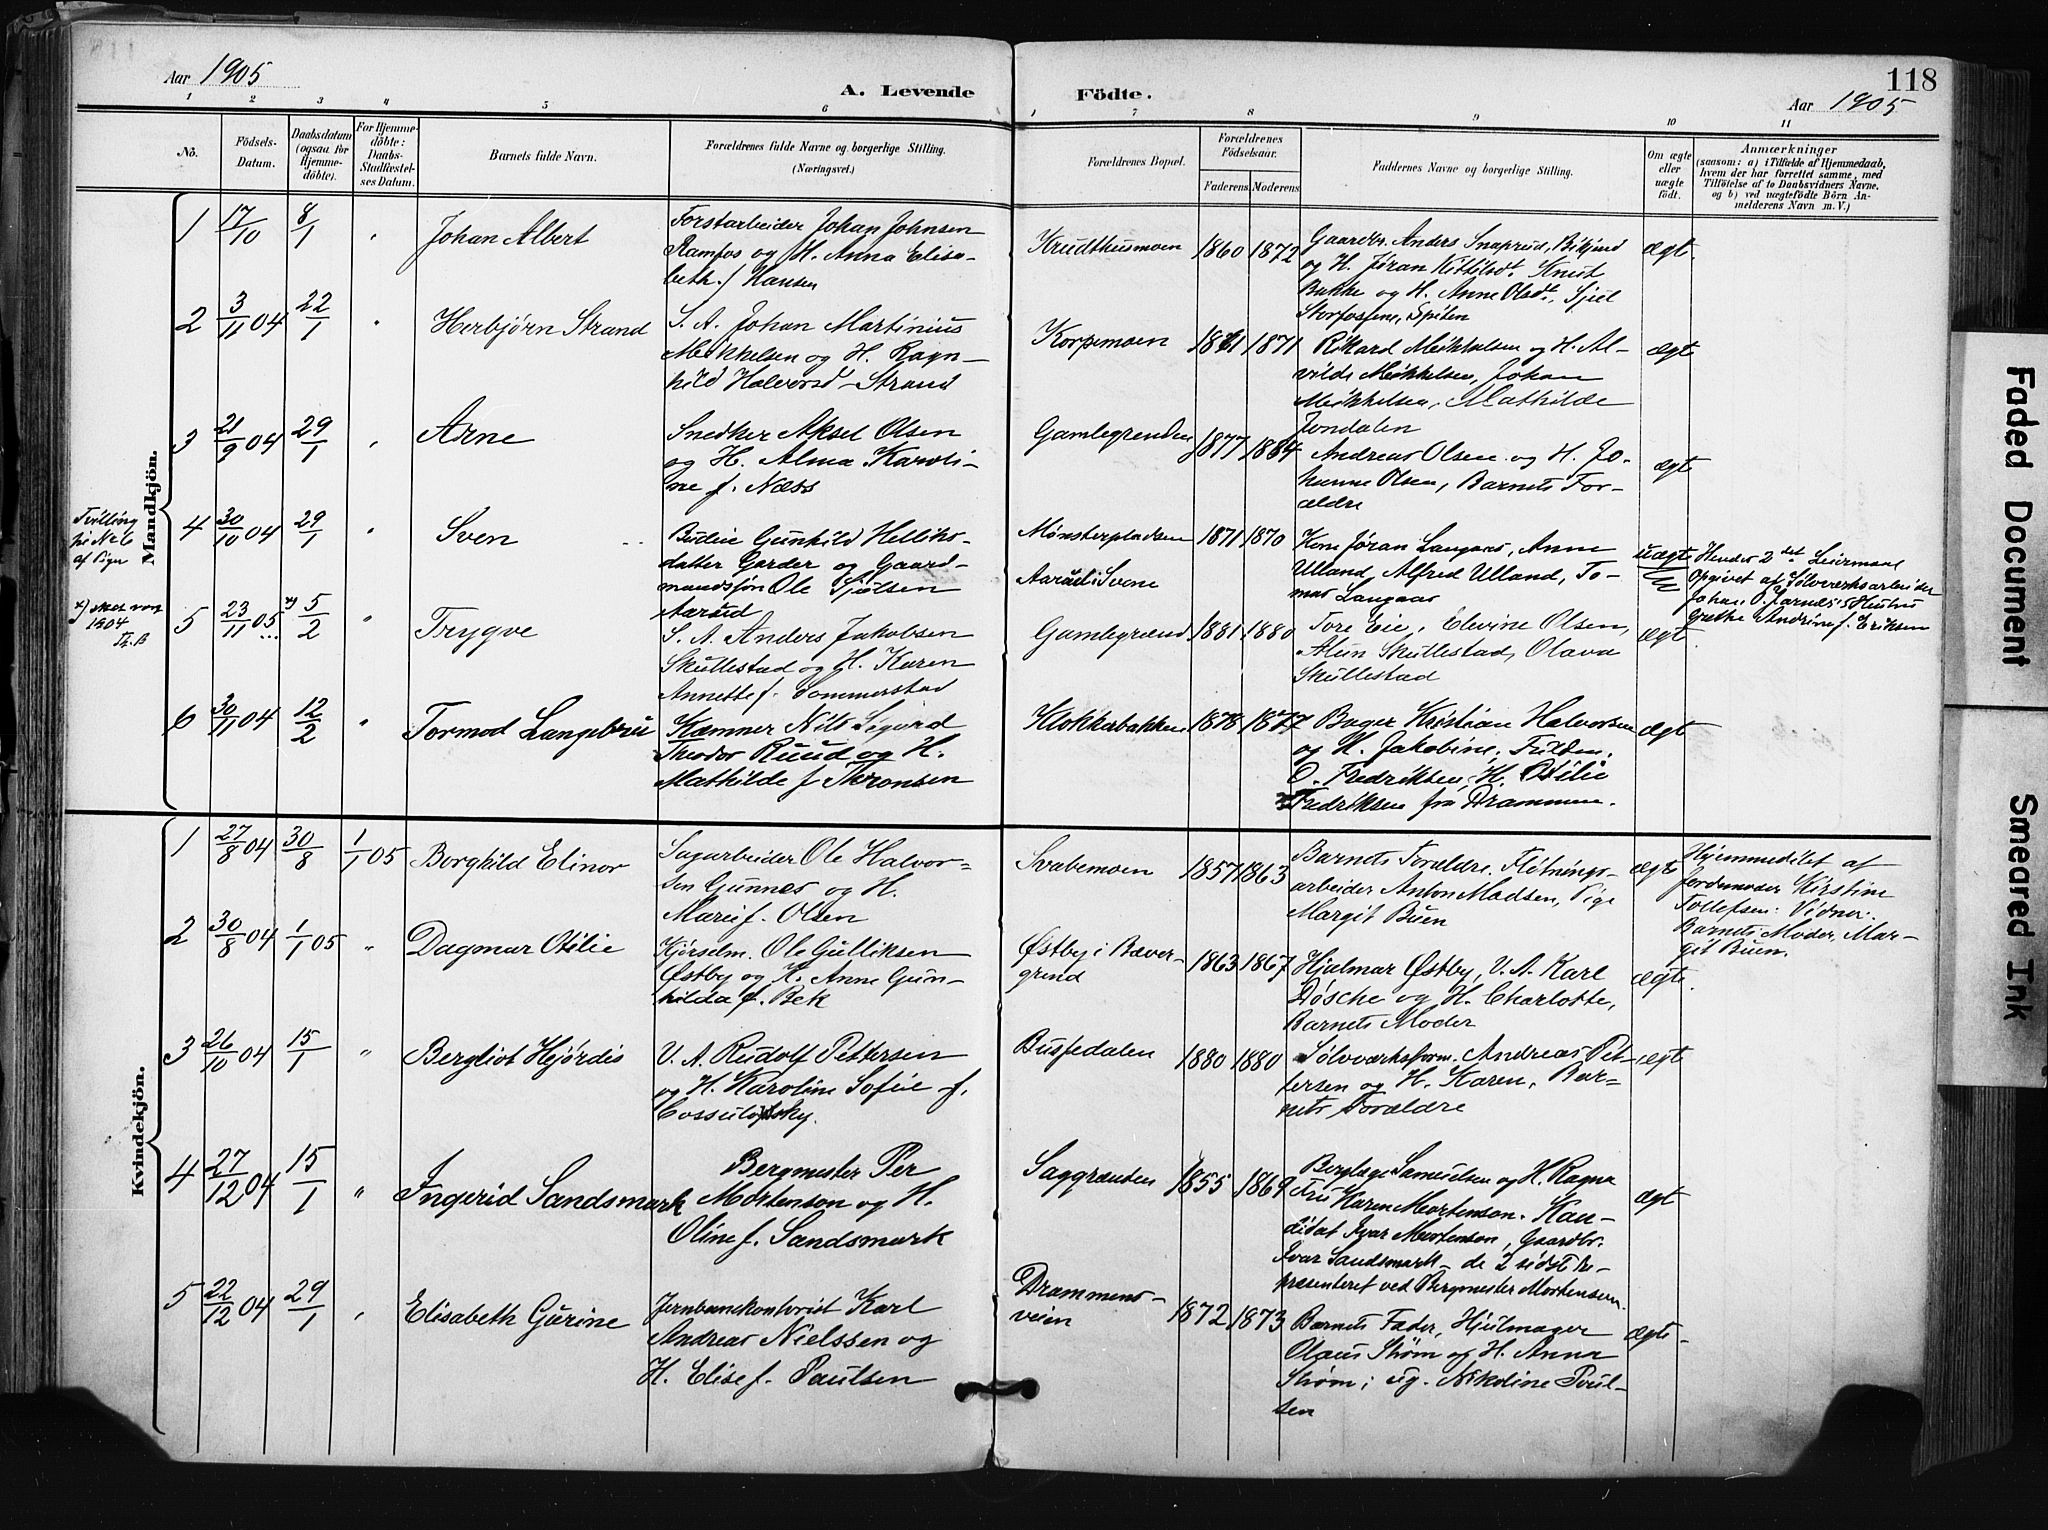 118
Aar 1905
A. Levende
Födte.
Aar 1905
1 2 3 4 5 6 1 7 8 9 10 11
No.
Födsels-
Datum.
Daabsdatum
(ogsaa for
Hjemme-
döbte).
For Hjemme-
döbte:
Daabs-
Stadfæstel-
ses Datum.
Barnets fulde Navn.
Forældrenes fulde Navne og borgerlige Stilling.
(Næringsvei.)
Forældrenes Bopæl.
Forældrenes
Födselsaar.
Faderens Moderens
Faddernes Navne og borgerlige Stilling.
Om ægte
eller
uægte
födt.
Anmærkninger
(saasom: a) i Tilfælde af Hjemmedaab,
hvem der har forrettet samme, med
Tilföielse af to Daabsvidners Navne.
og b) ved uægtefödte Börn An-
melderens Navn m. V.)
Mandkjön.
1 17/10 8/1 " Johan Albert
Forstarbeider Johan Johnsen
Ramfos og H. Anna Elisa-
beth f. Hansen
Krudthusmoen 1860 1872
Gaardbr. Anders Snaprud,
og H. Jøran Kittilsdt. Knut
Bakke og H. Anne Olsdt.
Storfossene, Spiten
ægt.
2 3/11 04 22/1 " Herbjørn Strand
S. A. Johan Martinius
Mikkelsen og H. Ragn-
hild Halvorsd. Strand
Korpemoen 1871 1871
Rikard Mikkelsen og H. Al-
vilde Mikkelsen, Johan
Mikkelsen, Mathilde
Jondalen
ægt
3 21/9 04 29/1 " Arne
Snedker Aksel Olsen
og H. Alma Karoli-
ne f. Næss
Gamlegrenden 1877 1884
Andreas Olsen og H. Jo-
hanne Olsen, Barnets For-
ældre
ægt
Tvilling
til No 6
af Piger
4 30/10 04 29/1 " Sven
Budeie Gunhild Helliks-
datter Garder og Gaard-
mandssøn Ole Sjulsen
Aarud
Mønsterpladsen
Aarud i Svene
1871 1870
Kone Jøran Langaas, Anne
Ulland, Alfred Ulland, To-
mas Langaas
uægte
Hendes 2det Leiermaal
Opgivet af Sølvværksarbeider
Johan O. Jarnæs's Hustru
Grethe Andrine f. Eriksen
x) skal være
1904
5 23/11 05 x) 5/2 " Trygve
S. A. Anders Jakobsen
Skullestad og H. Karen
Annette f. Sommerstad
Gamlegrænd 1881 1880
Tore Eie, Elevine Olsen,
Skullestad, Olava
Skullestad
ægt.
6 30/11 04 12/2 " Tormod Langebru
Kæmner Nils Sigurd
Theodor Ruud og H.
Mathilde f. Thronsen
Klokkerbakken 1878 1877
Bager Kristian Halvorsen
og H. Jakobine, Fuldm.
O. Fredriksen, H. Otilie
Fredriksen fra Drammen.
ægt
Kvindekjön.
1 27/8 04 30/8 1/1 05 Borghild Elinor
Sagarbeider Ole Halvor-
sen Gunnes og H.
Marie f. Olsen
Svabemoen 1857 1863
Barnets Forældre. Fløtnings-
arbeider Anton Madsen, Pige
Margit Buen
ægte
Hjemmedøbt af
Jordemoder Kirstine
Tollefsen. Vidner:
Barnets Moder, Mar-
git Buen.
2 30/8 04 1/1 05 " Dagmar Otilie
Kjørselm. Ole Gulliksen
Østby og H. Anne Gun-
hilda f. Bek
Østby i Bæver-
grend
1863 1867
Hjalmar Østby, V. A. Karl
Døsche og H. Charlotte,
Barnets Moder
ægte.
3 26/10 04 15/1 " Bergliot Hjørdis
V. A. Rudolf Pettersen
og H. Karoline Sofie f.
Bussedalen 1880 1880
Sølvværksform. Andreas Pet-
tersen og H. Karen, Bar-
nets Forældre
ægt
4 27/12 04 15/1 " Ingerid Sandsmark
Bergmester Per
Mortenson og H.
Oline f. Sandsmark
Saggrenden 1855 1869
Berglæge Samuelsen og H. Ragna
Fru Karen Mortenson. Kan-
didat Ivar Mortenson, Gaardbr.
Ivar Sandsmark - de 2 sidste re-
præsenteret ved Bergmester Mortenson.
ægt
5 22/12 04 29/1 " Elisabeth Gurine
Jernbanekontorist Karl
Andreas Nielssen og
H. Elise f. Paulsen
Drammens-
veien
1872 1873
Barnets Fader, Hjulmager
Olaus Strøm og H. Anna
Strøm; ug. Nikoline Poul-
sen
ægte
Faded Document
Smeared Ink